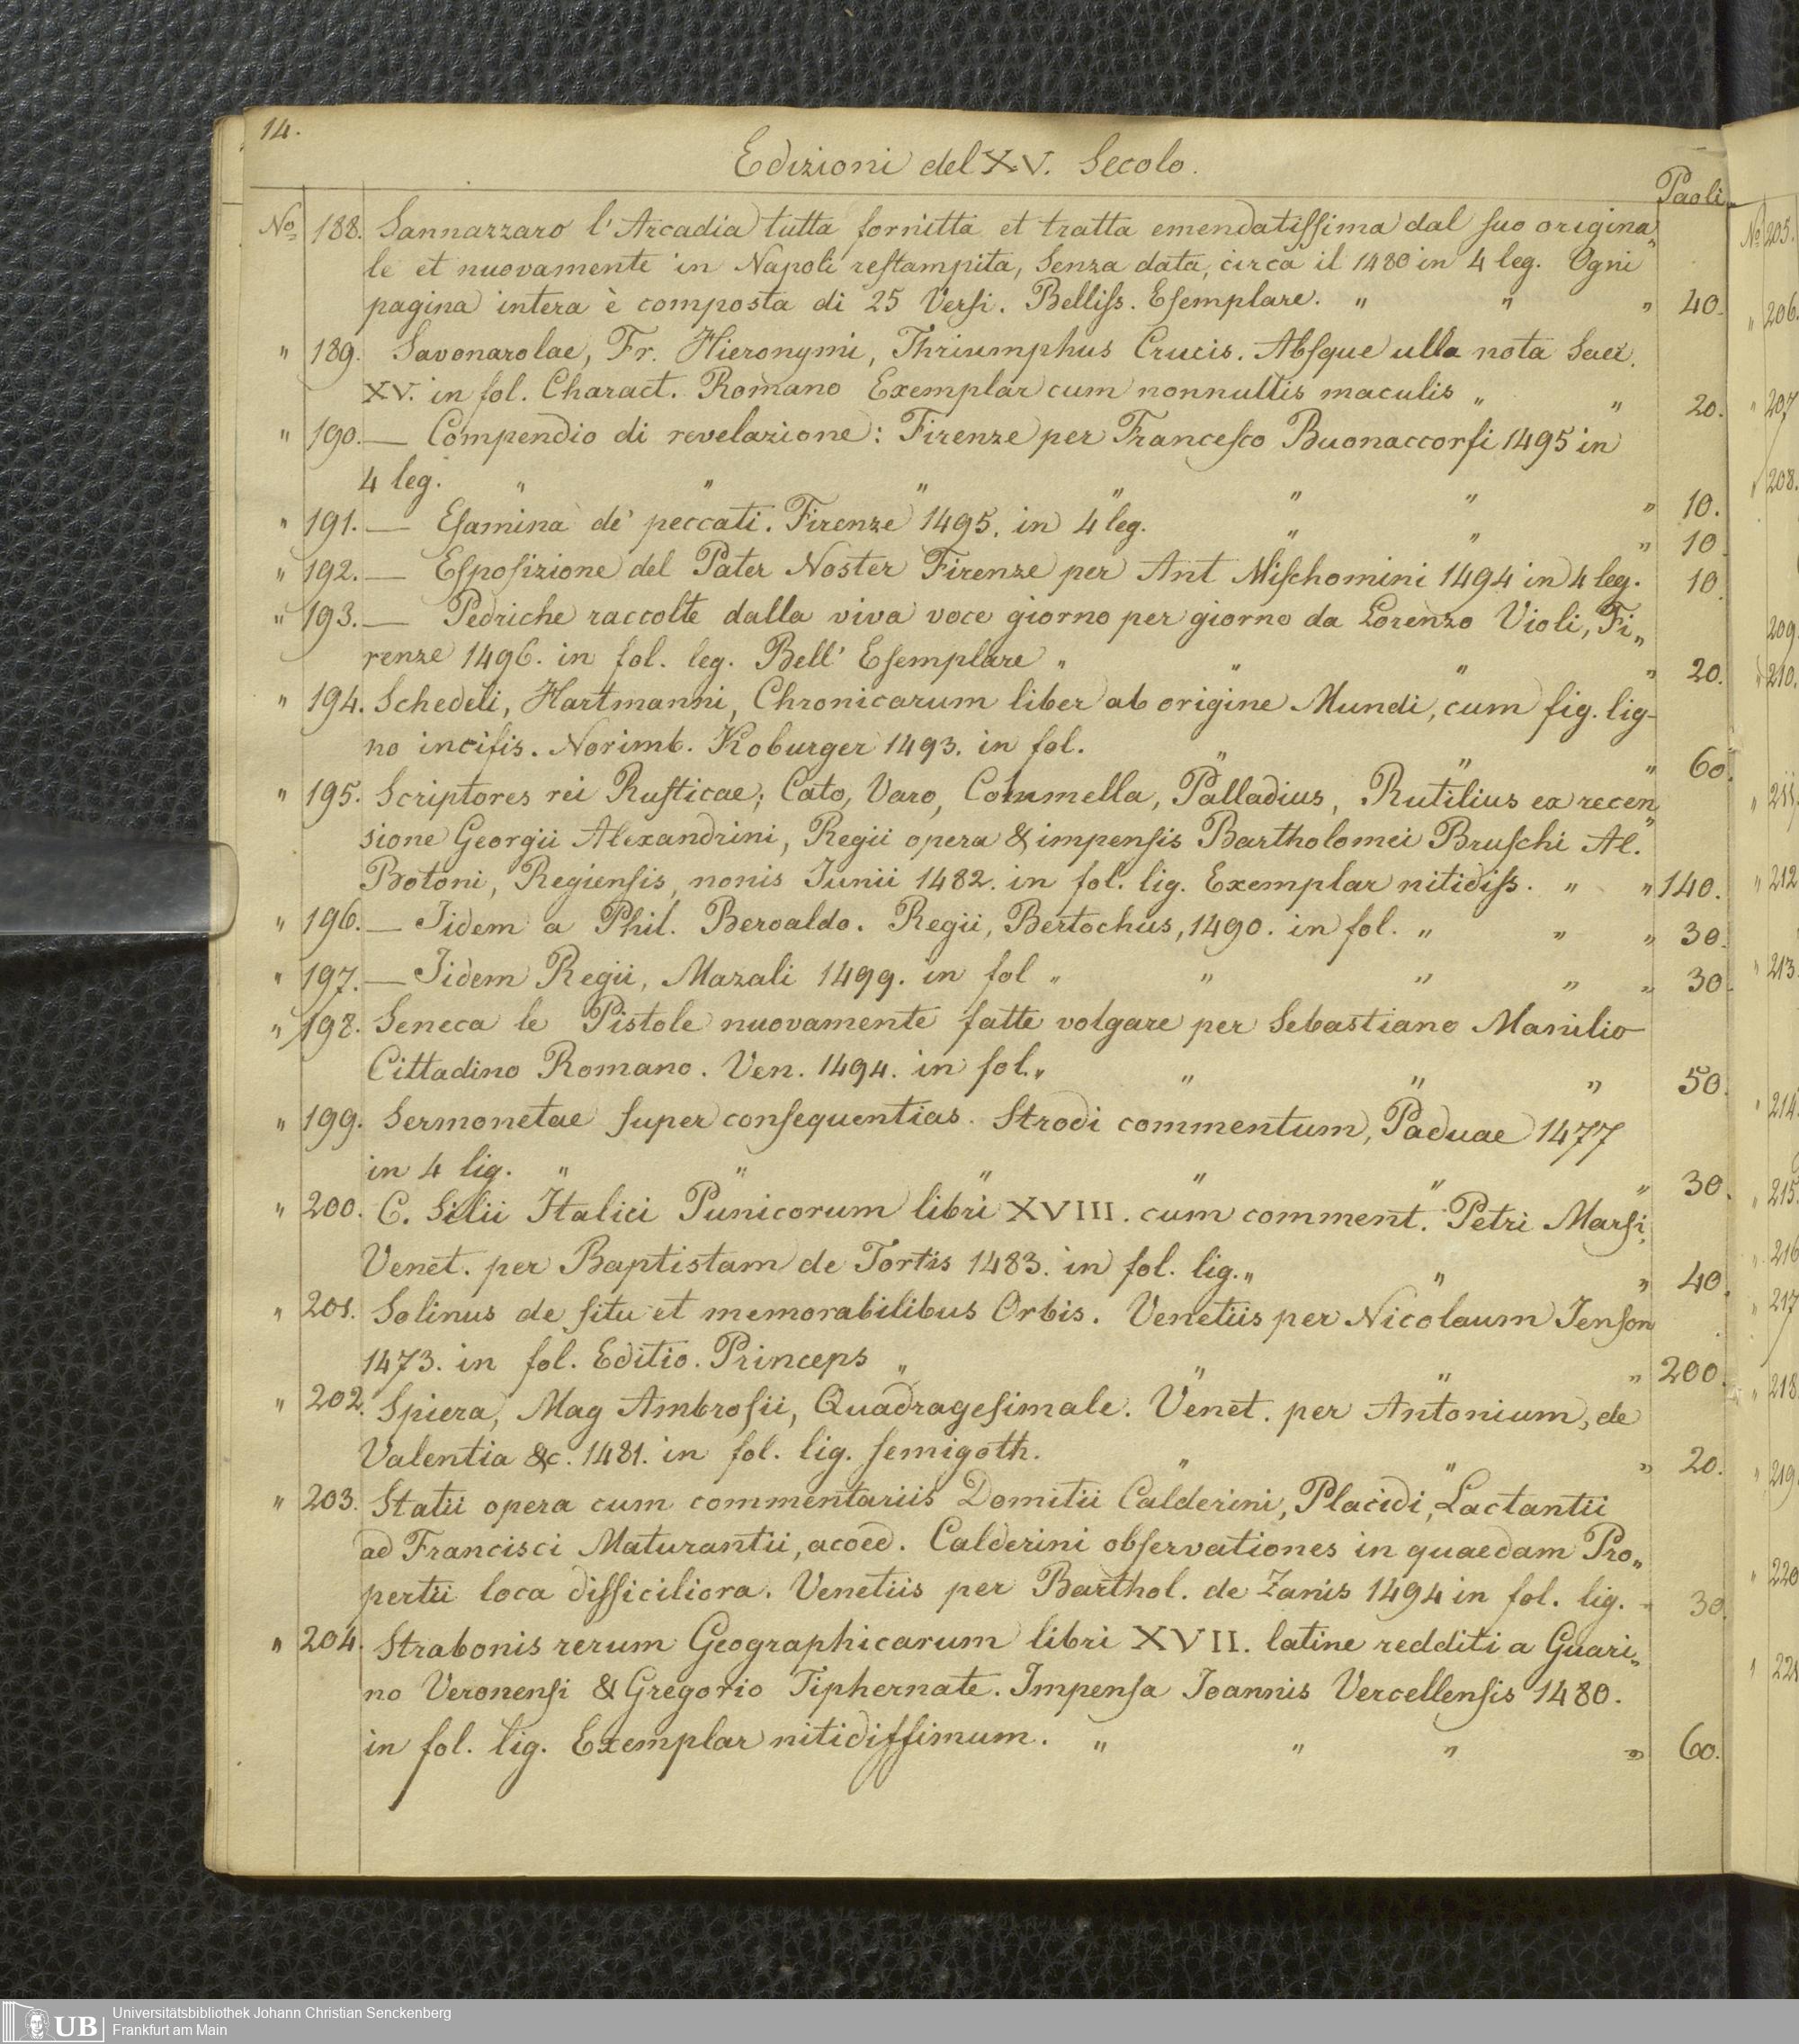 14.
Edizioni del XV. Secolo.
Paoli
No 188. Sannazzaro l'Arcadia tutta fornitta et tratta emendatiſſima dal ſuo origina„
le et nuovamente in Napoli reſtampita, Senza data, circa il 1480 in 4 leg. Ogni
pagina intera è composta di 25 Verſi. Belliſs. Eſemplare. " " " 40.
" 189. Savonarolae, Fr. Hieronymi, Thriumphus Crucis. Abſque ulla nota Saec.
XV. in fol. Charact. Romano Exemplar cum nonnullis maculis " " 20.
" 190. — Compendio di revelazione: Firenze per Franceſco Buonaccorſi 1495 in
4 leg. " " " " " " " 10.
" 191. — Eſamina de' peccati. Firenze 1495. in 4 leg. " " " 10
" 192. — Eſpoſizione del Pater Noster Firenze per Ant Miſchomini 1494 in 4 leg. 10
" 193. — Pedriche raccolte dalla viva voce giorno per giorno da Lorenzo Violi, Fi„
renze 1496. in fol. leg. Bell' Eſemplare " " " " 20.
" 194. Schedeli, Hartmanni, Chronicarum liber ab origine Mundi, cum fig. lig-
no inciſis. Norimb. Koburger 1493. in fol. " " " 60.
" 195. Scriptores rei Ruſticae; Cato, Varo, Columella, Palladius, Rutilius ex recen„
sione Georgii Alexandrini, Regii opera & impenſis Bartholomei Bruſchi Al.
Botoni, Regienſis, nonis Junii 1482. in fol. lig. Exemplar nitidiſs. " " 140.
" 196. — Iidem a Phil. Beroaldo. Regii, Bertochus, 1490. in fol. " " " 30.
" 197. — Iidem Regii, Mazali 1499. in fol " " " " " 30.
" 198. Seneca le Pistole nuovamente fatte volgare per Sebastiano Manilio
Cittadino Romano. Ven. 1494. in fol. " " " " 50.
" 199. Sermonetae ſuper conſequentias. Strodi commentum, Paduae 1477
in 4 lig. " " " " " " 30.
" 200. C. Silii Italici Punicorum libri XVIII. cum comment. Petri Marſi,
Venet. per Baptistam de Tortis 1483. in fol. lig. " " " 40.
" 201. Solinus de ſitu et memorabilibus Orbis. Venetiis per Nicolaum Jenſon
1473. in fol. Editio. Princeps " " " " 200.
" 202. Spiera, Mag Ambroſii, Quadrageſimale. Venet. per Antonium, de
Valentia &c. 1481. in fol. lig. ſemigoth. " " " 20.
" 203. Statii opera cum commentariis Domitii Calderini, Placidi, Lactantii
ad Francisci Maturantii, acced. Calderini obſervationes in quaedam Pro„
pertii loca difficiliora. Venetiis per Barthol. de Zanis 1494 in fol. lig. " 30.
" 204. Strabonis rerum Geographicarum libri XVII. latine redditi a Guari„
no Veronenſi & Gregorio Tiphernate. Impenſa Joannis Vercellenſis 1480.
in fol. lig. Exemplar nitidiſſimum. " " " " 60.
No 205.
" 206.
" 207
" 208.
209.
" 210.
" 211.
" 212
" 213.
" 214.
" 215.
" 216
" 217
" 218
" 219
" 220
" 221
UB
Universitätsbibliothek Johann Christian Senckenberg
Frankfurt am Main